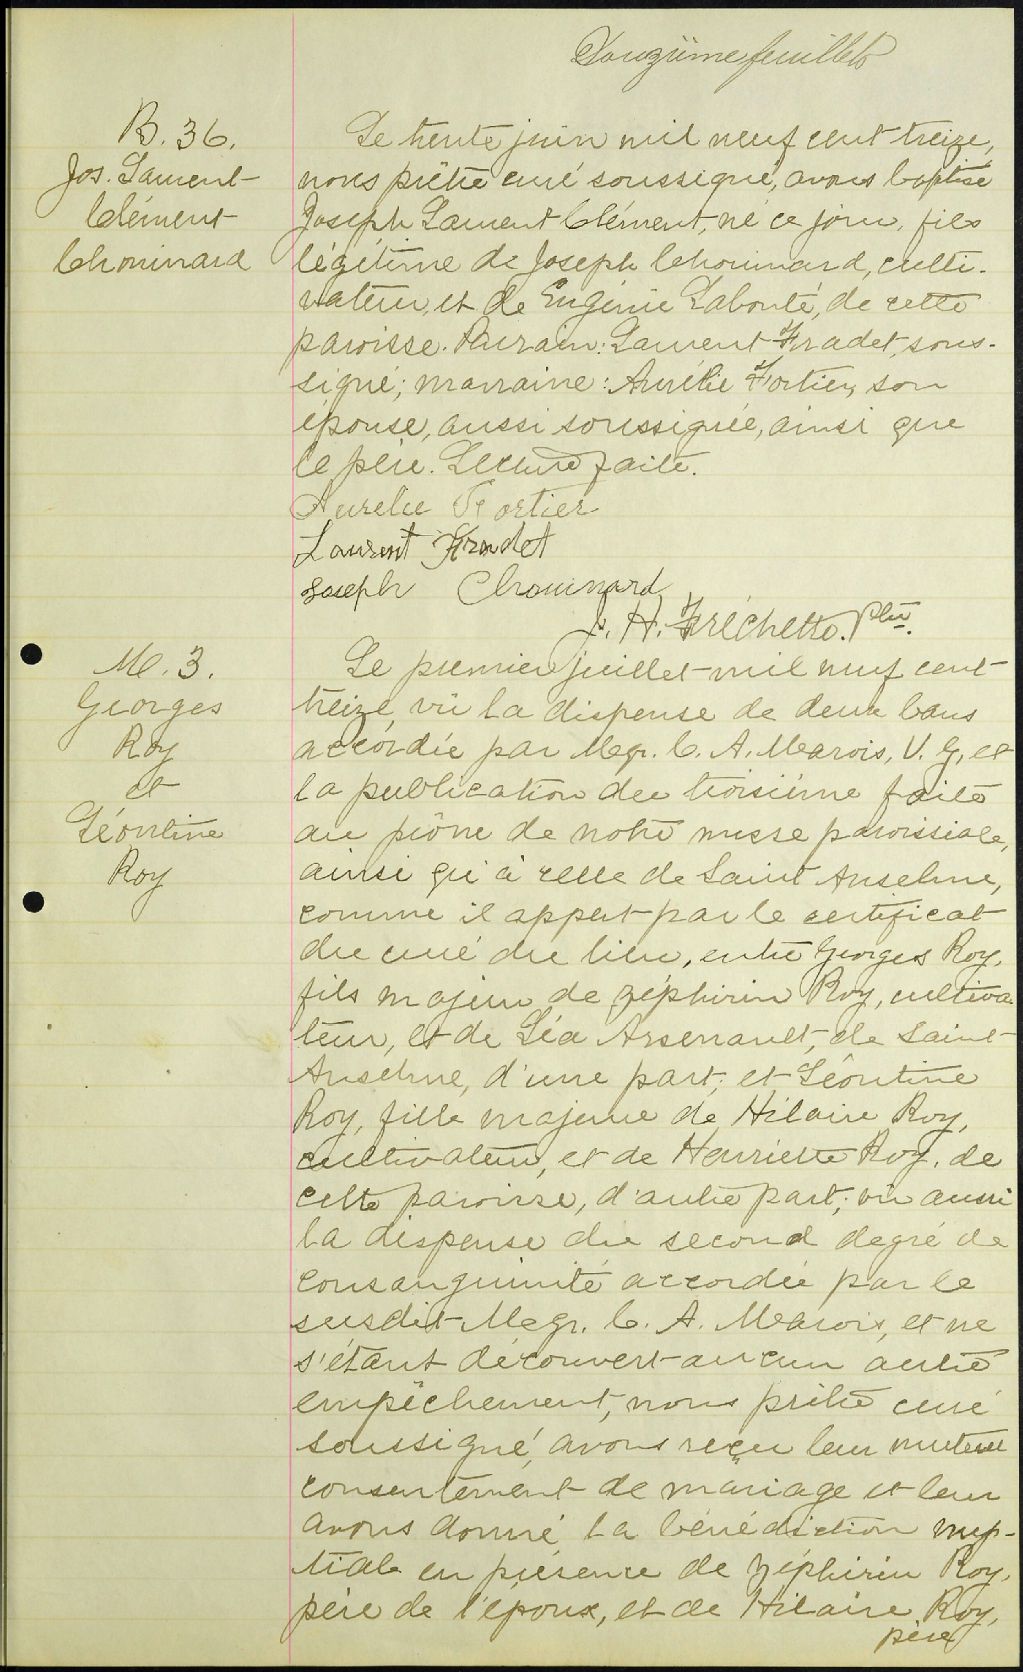 Douzième feuillet
B. 36.
Jos. Laurent
Clément
Chouinard
Le trente juin mil neuf cent treize,
nous prêtre curé soussigné, avons baptisé
Joseph Laurent Clément, né ce jour, fils
légitime de Joseph Chouinard, culti-
vateur, et de Eugénie Labonté, de cette
paroisse. Parrain: Laurent Fradet, sous-
signé; marraine: Aurélie Fortier, son
épouse, aussi soussignée, ainsi que
le père. Lecture faite.
Aurelie Fortier
Laurent Fradet
Joseph Chouinard
J. H. Fréchette. Ptre.
M. 3.
Georges
Roy
et
Léontine
Roy
Le premier juillet mil neuf cent
treize, vu la dispense de deux bans
accordée par Mgr. C. A. Marois, V. G, et
la publication du troisième faite
au prône de notre messe paroissiale,
ainsi qu'à celle de Saint Anselme,
comme il appert par le certificat
du curé du lieu, entre Georges Roy,
fils majeur de Zéphirin Roy, cultiva-
teur, et de Léa Arsenault, de Saint
Anselme, d'une part; et Léontine
Roy, fille majeure de Hilaire Roy,
cultivateur, et de Henriette Roy, de
cette paroisse, d'autre part; vu aussi
la dispense du second degré de
consanguinité accordée par le
susdit Mgr. C. A. Marois, et ne
s'étant découvert aucun autre
empêchement, nous prêtre curé
soussigné, avons reçu leur mutuel
consentement de mariage et leur
avons donné la bénédiction nup-
tiale en présence de Zéphirin Roy,
père de l'époux, et de Hilaire Roy,
père